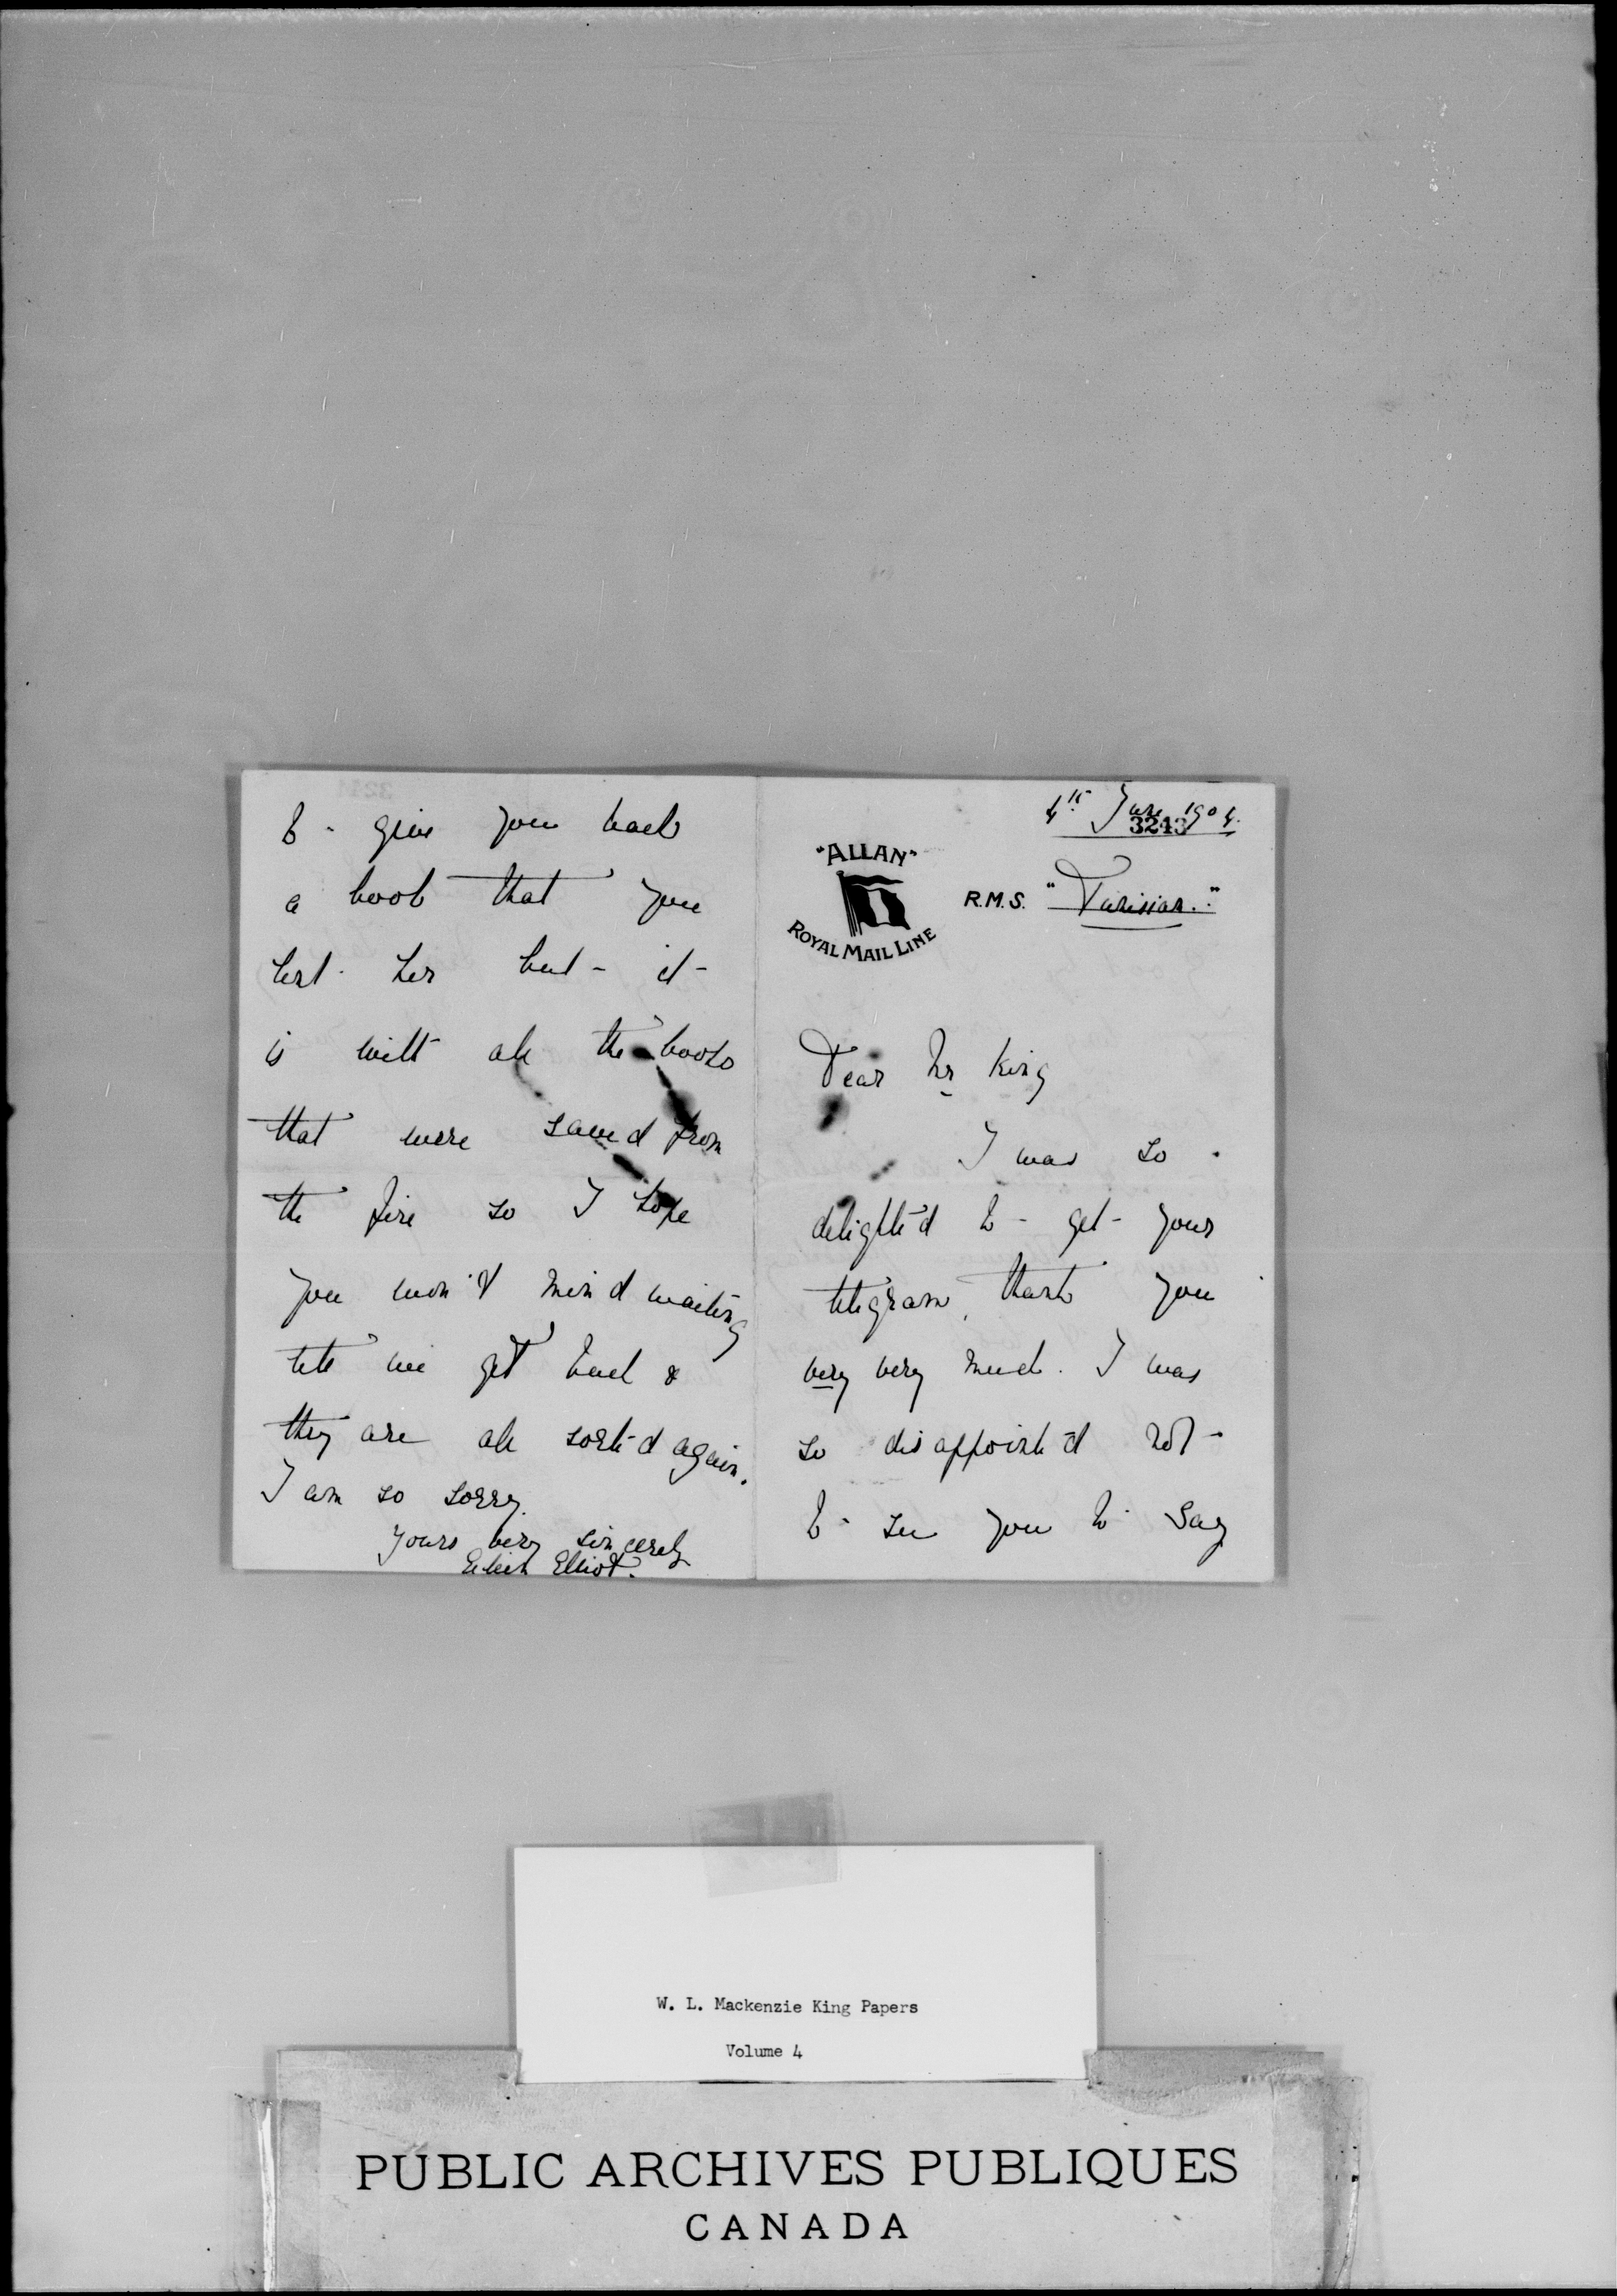 4th June 1904.
3243
"ALLAN"
ROYAL MAIL LINE
R.M.S. "Tunisian."
Dear Mr King
I was so
delighted to get your
telegram, thank you
very very much. I was
so disappointed not
to see you to say
to give you back
a book that you
lent her but it
is with all the books
that were saved from
the fire so I hope
you won't mind waiting
till we get back &
they are all sorted again.
I am so sorry.
Yours very sincerely
Eileen Elliot.
W. L. Mackenzie King Papers
Volume 4
PUBLIC ARCHIVES PUBLIQUES
CANADA